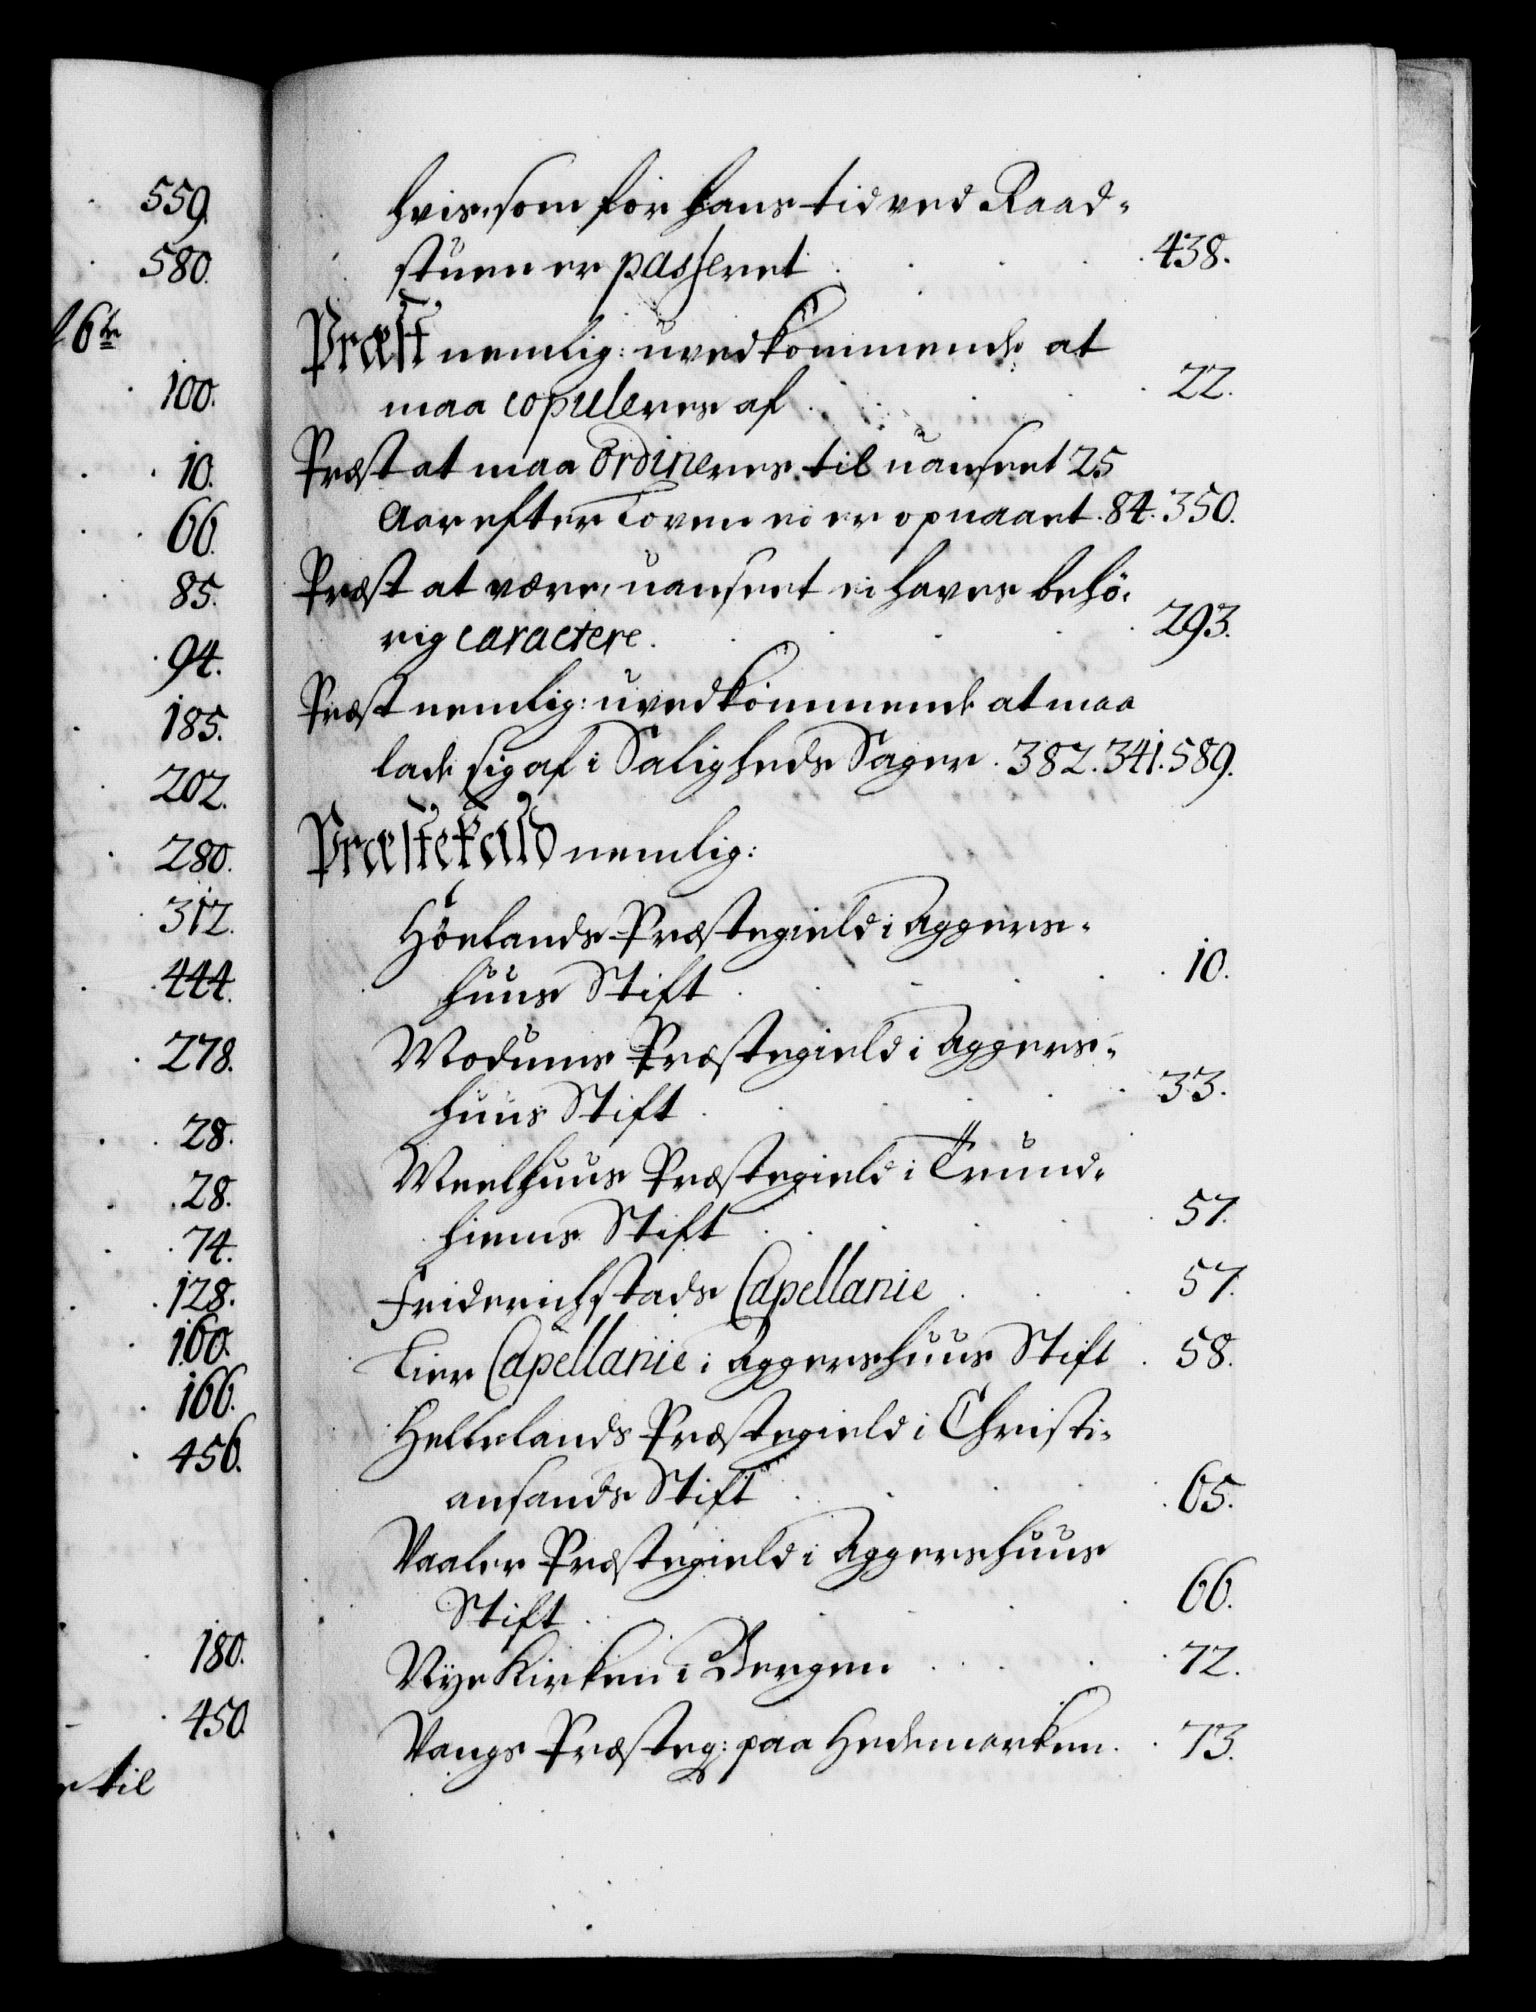 559.
580.
6te
100.
10.
66.
85.
94.
185.
202.
280.
312.
444.
278.
28.
28.
74.
128.
160.
166.
456.
180.
450
til
hvis, som før hans tid ved Raad-
stuen er passeret . . . . 438.
Præst nemlig: uvedkommende at
maa copuleres af . . . 22.
Præst at maa ordineres til uanseet 25
Aar efter Loven ei er opnaaet . 84. 350.
Præst at være, uanseet ei haves behö-
rig caractere . . . . 293.
Præst nemlig: uvedkommende at maa
lade sig af i Saligheds Sager . 382. 341. 589.
Præstekald nemlig:
Hölands Præstegield i Aggers-
huus Stift . . . . 10.
Modums Præstegield i Aggers-
huus Stift . . . . 33.
Meelhuus Præstegield i Trund-
hiems Stift . . . . 57.
Friderichstads Capellanie . . . 57.
Lier Capellanie i Aggershuus Stift . 58.
Hellelands Præstegield i Christi-
ansands Stift . . . . 65.
Vaaler Præstegield i Aggershuus
Stift . . . . 66.
Nye Kirken i Bergen . . . 72.
Vangs Præsteg: paa Hedemarken . . 73.